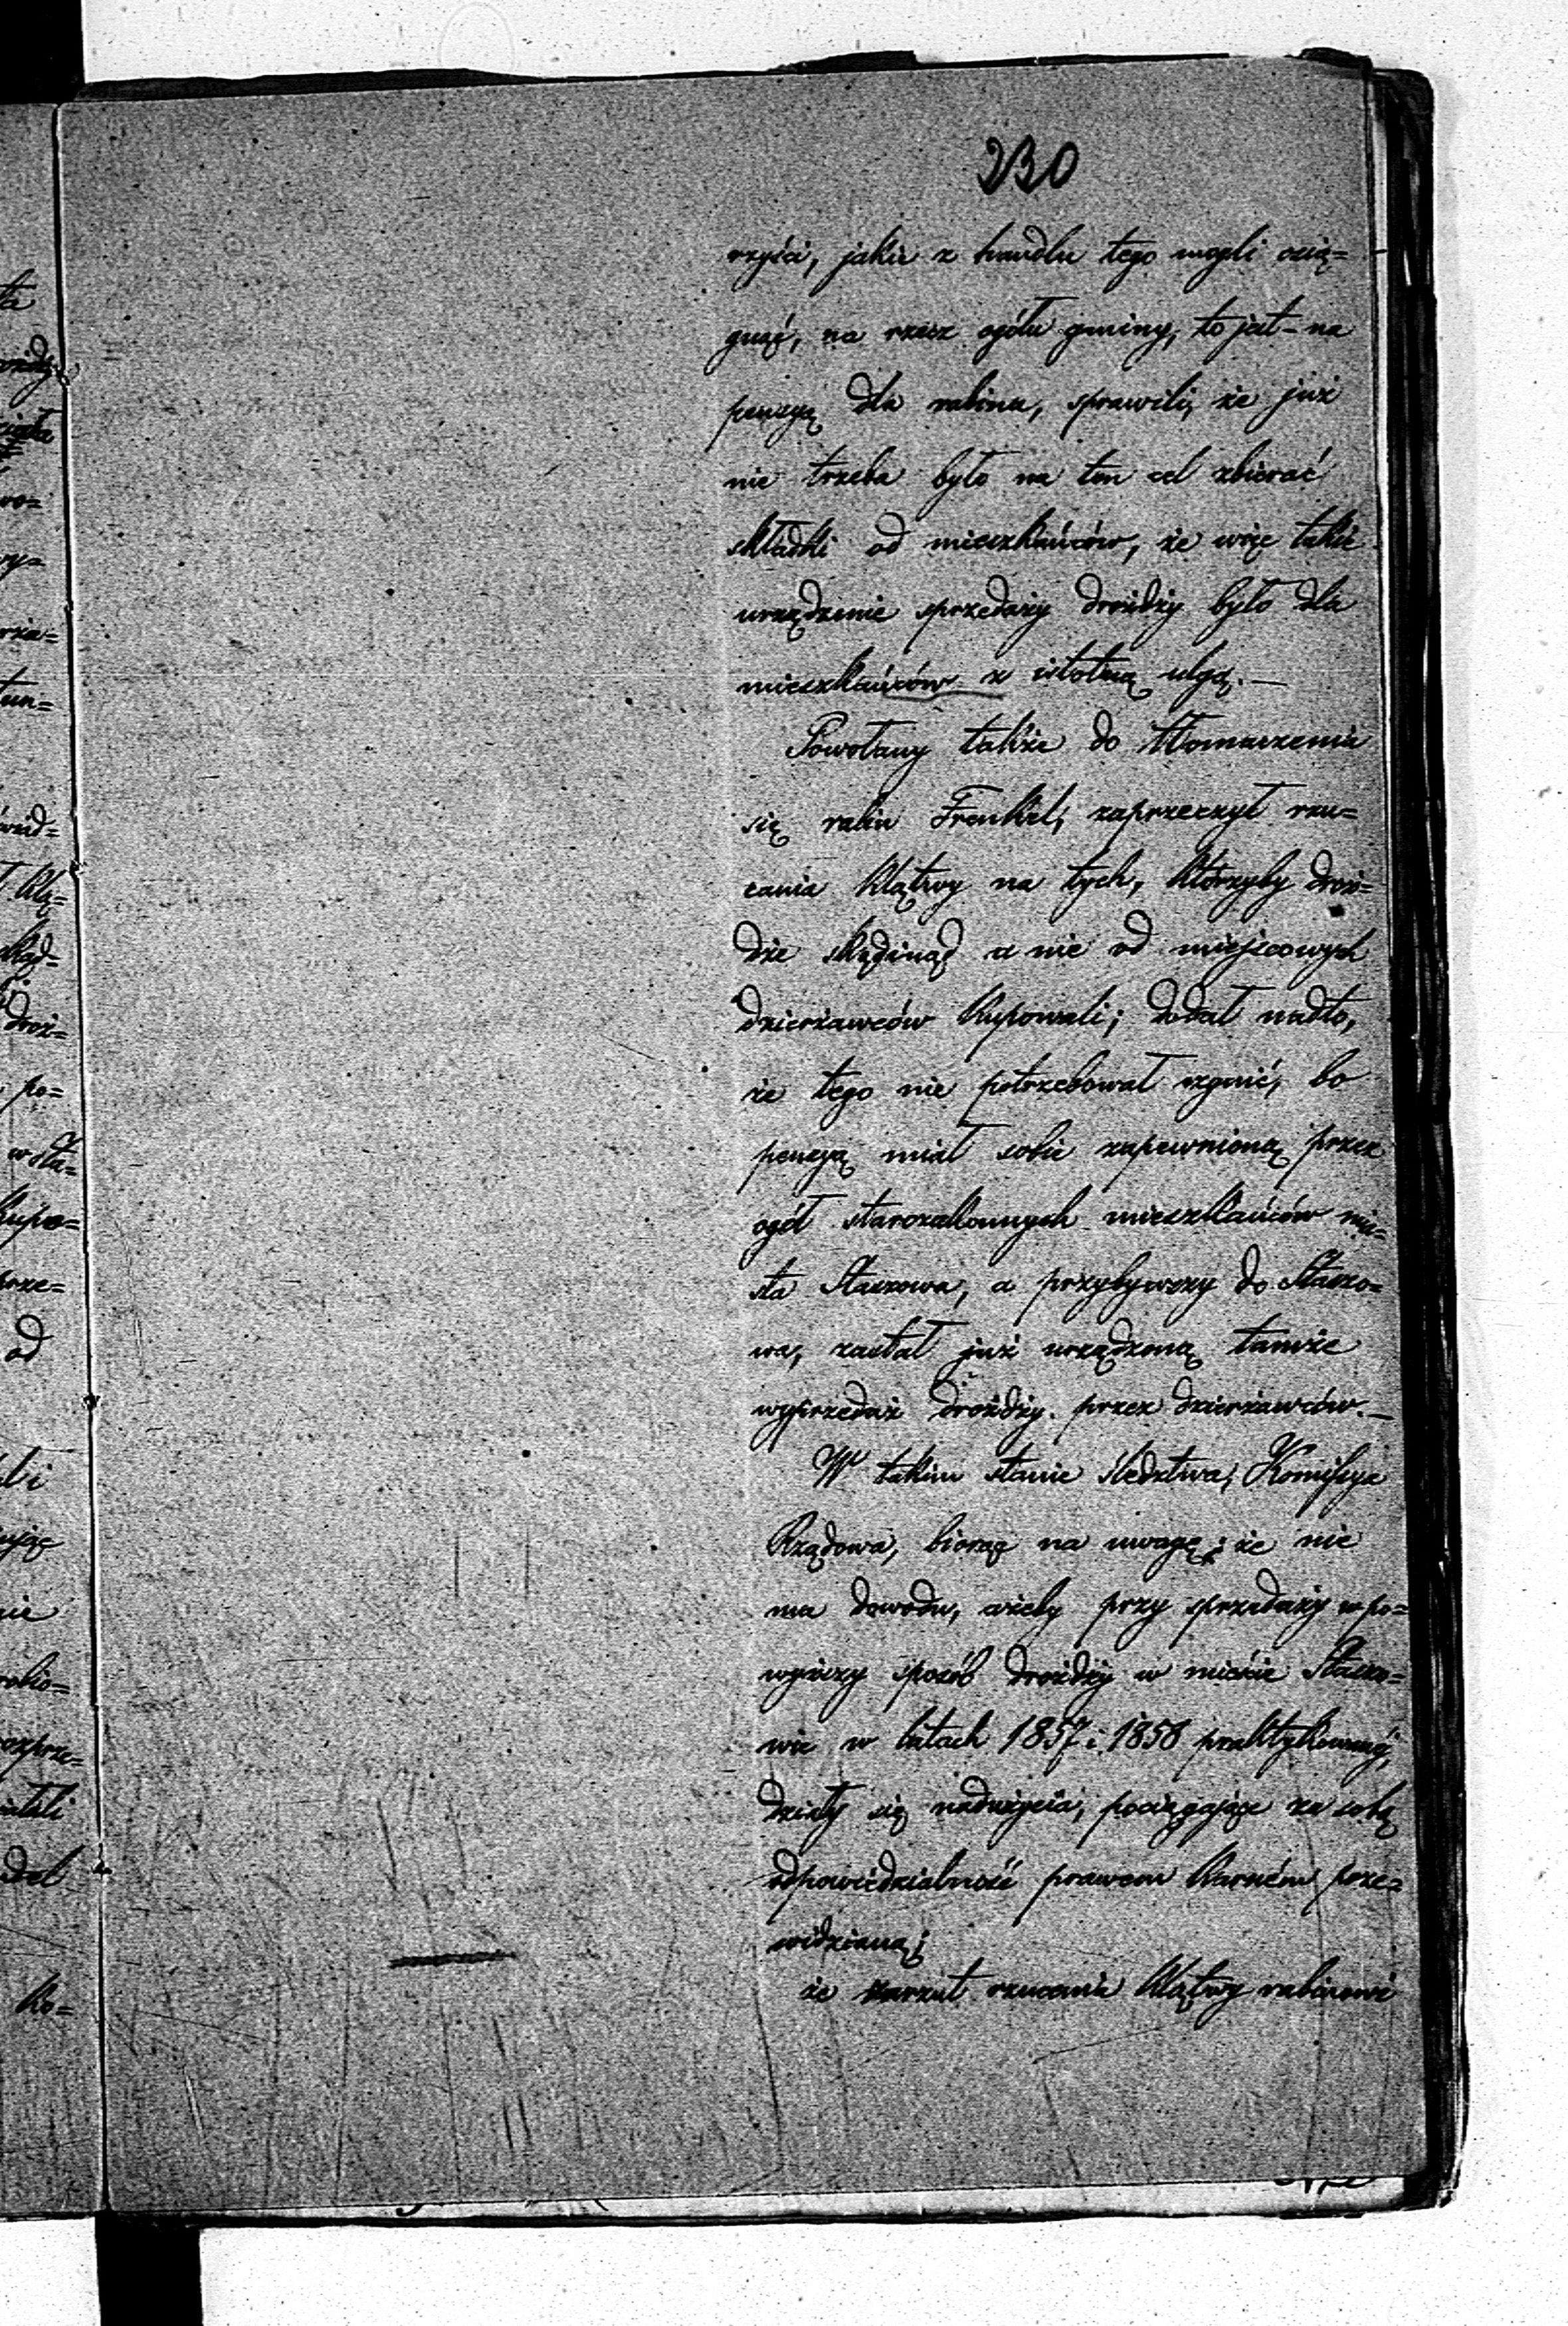 230
rzyści, jakie z handlu tego mogli osią=
gnąć, na rzecz ogółu gminy, to jest - na
pensyą dla rabina, sprawili, że już
nie trzeba było na ten cel zbierać
składki od mieszkańców, że więc takie
urządzenie sprzedaży drożdży było dla
mieszkańców z istotną ulgą. —
Powołany także do tłomaczenia
się rabin Frenkel, zaprzeczył rzu=
cania klątwy na tych, którzyby droż=
dże skądinąd a nie od miejscowych
dzierżawców kupowali; dodał nadto,
że tego nie potrzebował czynić, bo
pensyą miał sobie zapewnioną przez
ogół starozakonnych mieszkańców mia=
sta Staszowa, a przybywszy do Staszo=
wa, zastał już urządzoną tamże
wyprzedaż drożdży przez dzierżawców. —
W takim stanie śledztwa, Kommissya
Rządowa, biorąc na uwagę; że nie
ma dowodu, ażeby przy sprzedaży w po=
wyższy sposób drożdży w mieście Staszo=
wie w latach 1857 i 1858 praktykowanej,
działy się nadużycia, pociągające za sobą
odpowiedzialność prawem karném prze=
widzianą;
że zarzut rzucania klątwy rabinowi